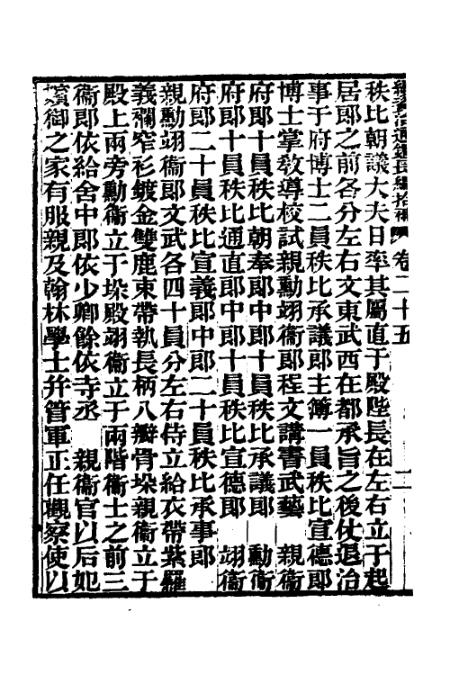 續資治通鑑長編拾補　卷二十五
秩比朝議大夫日率其屬直于殿陛長在左右立于起
居郎之前各分左右文東武西在都承旨之後仗退治
事于府博士二員秩比承議郎主簿一員秩比宣德郎
博士掌敎導校試親勳翊衞郎程文講書武藝　親衞
府郎十員秩比朝奉郎中郎十員秩比承議郎　勳衞
府郎十員秩比通直郎中郎十員秩比宣德郎　翊衞
府郎二十員秩比宣義郎中郎二十員秩比承事郎
親勳翊衞郎文武各四十員分左右侍立給衣帶紫羅
義襴窄衫鍍金雙鹿束帶執長柄八瓣骨垛親衞立于
殿上兩旁勳衞立于垛殿翊衞立于兩階衞士之前三
衞郎依給舍中郎依少卿餘依寺丞　親衞官以后妃
嬪御之家有服親及翰林學士幷管軍正任觀察使以